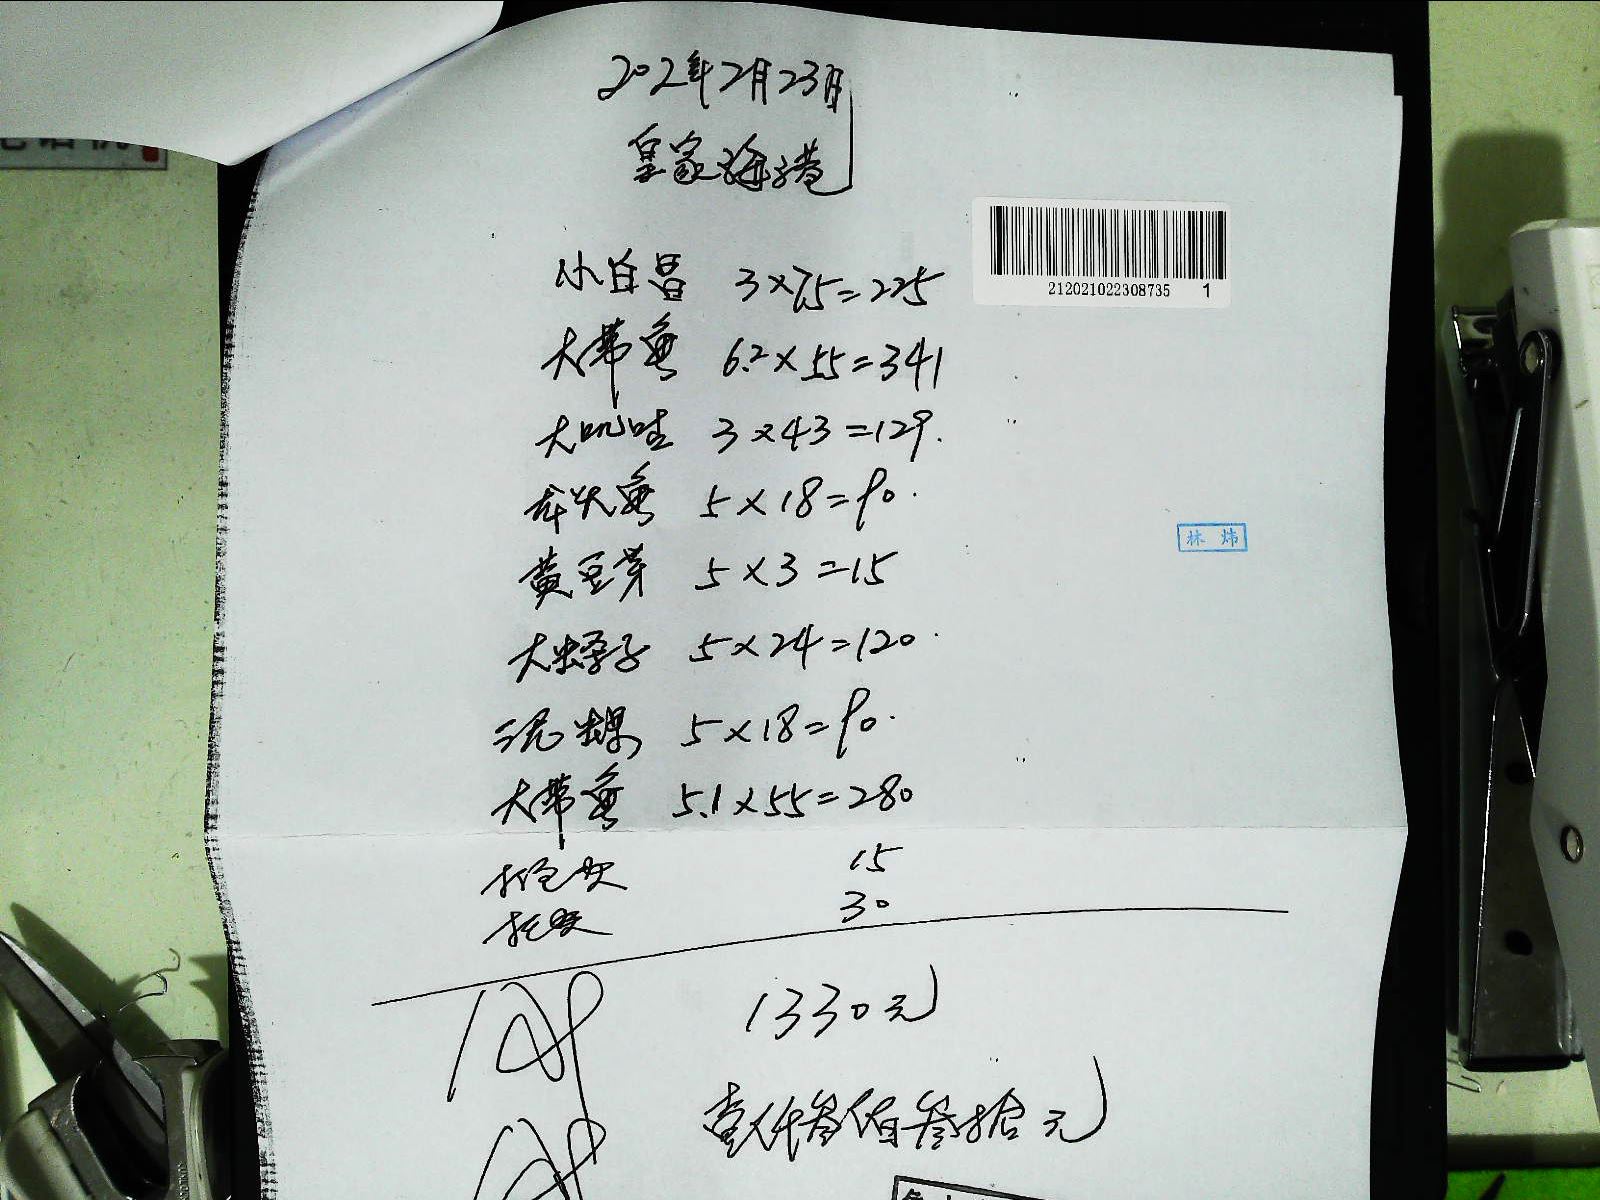 202年2月23日
皇家海港
212021022308735 1
小白昌 3×75=225
大带鱼 6.2×55=341
大吼哇 3×43=129.
龙头鱼 5×18=90.
林炜
黄豆芽 5×3=15
大蛏子 5×24=120.
泥螺 5×18=90.
大带鱼 5.1×55=280
15
30
1330元
壹仟叁佰叁拾元